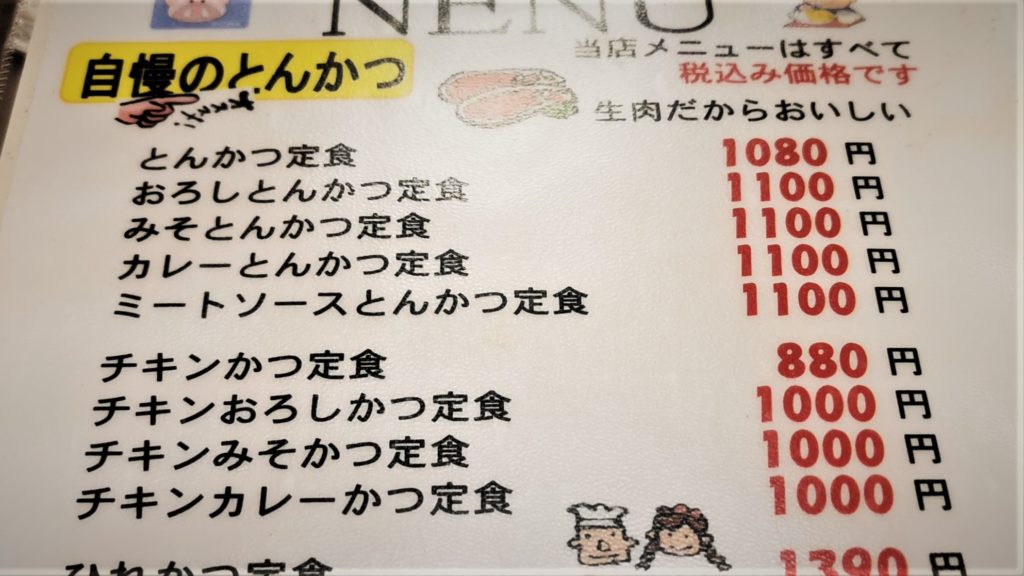 NENU
自慢のとんかつ
当店メニューはすべて
税込み価格です
生肉だからおいしい
とんかつ定食 1080 円
おろしとんかつ定食 1100 円
みそとんかつ定食 1100 円
カレーとんかつ定食 1100 円
ミートソースとんかつ定食 1100 円
チキンかつ定食 880 円
チキンおろしかつ定食 1000 円
チキンみそかつ定食 1000 円
チキンカレーかつ定食 1000 円
ひれかつ定食 1390 円